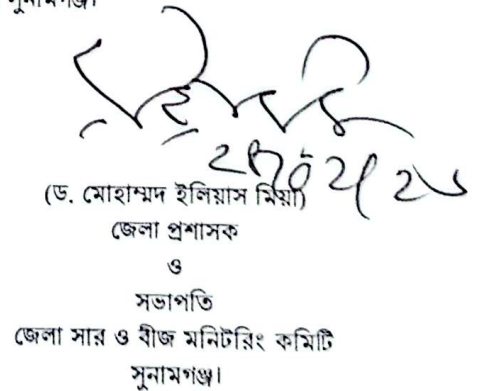 সুনামগঞ্জ।
(ড. মোহাম্মদ ইলিয়াস মিয়া)
জেলা প্রশাসক
ও
সভাপতি
জেলা সার ও বীজ মনিটরিং কমিটি
সুনামগঞ্জ।